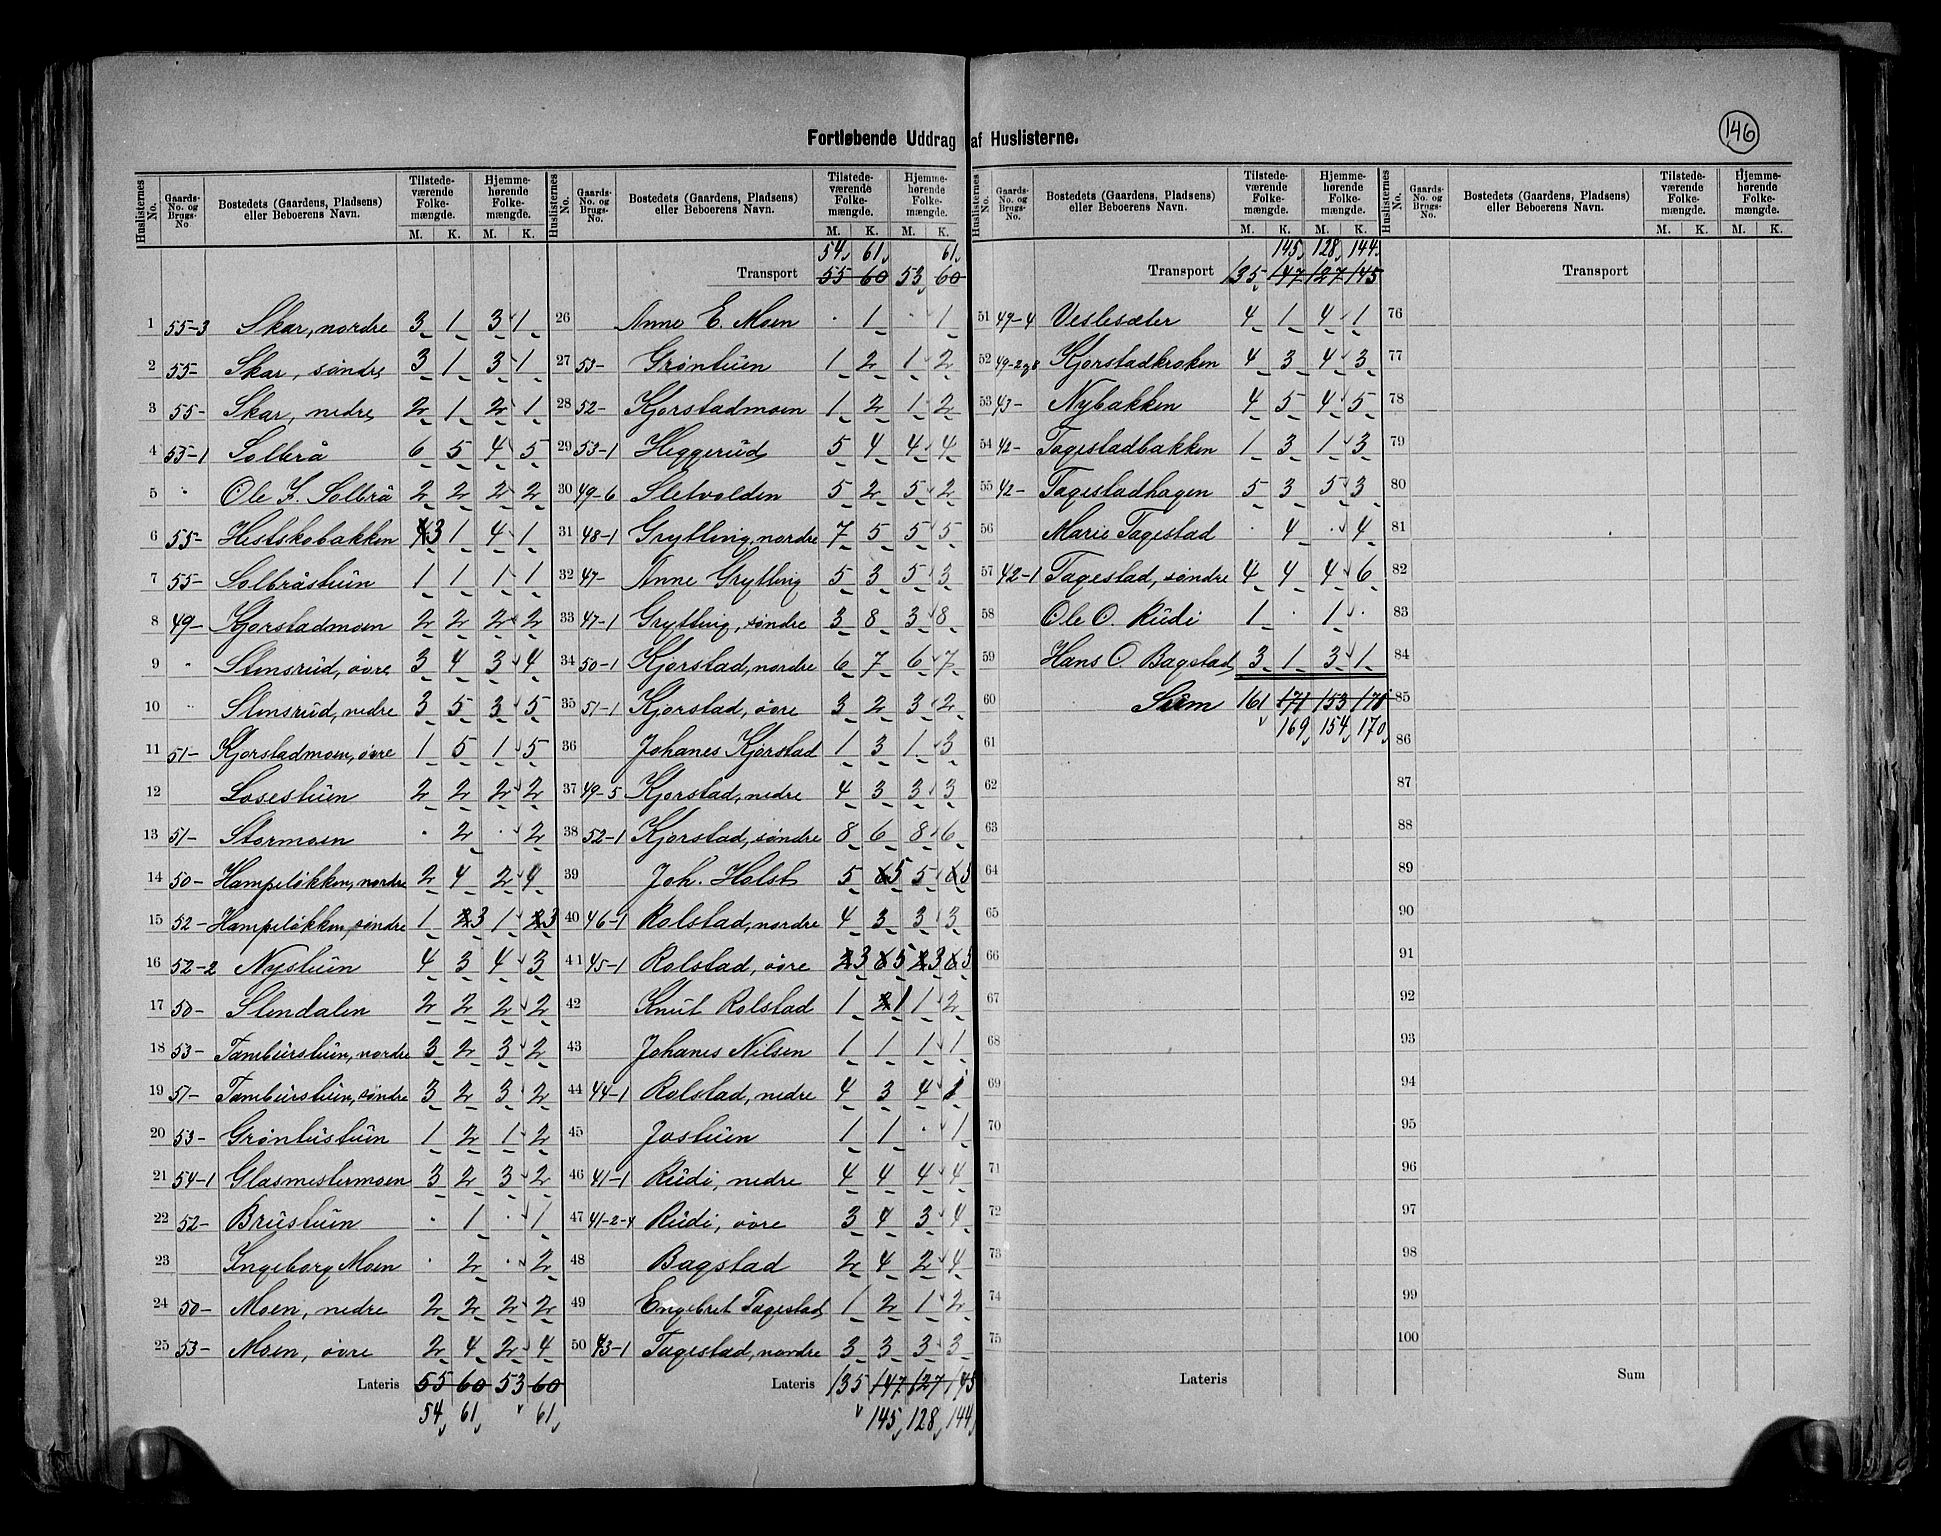 146
Fortløbende Uddrag af Huslisterne.
Huslisternes No. | Gaards-No. og Brugs-No. | Bostedets (Gaardens, Pladsens) eller Beboerens Navn. | Tilstedeværende Folkemængde. M. K. | Hjemmehørende Folkemængde. M. K.
1 55-3 Skar, nordre 3 1 3 1
2 55- Skar, søndre 3 1 3 1
3 55- Skar, nedre 2 1 2 1
4 53-1 Solbrå 6 5 4 5
5 " Ole J. Solbrå 2 2 2 2
6 55- Hestskobakken 3 1 4 1
7 55- Solbråstuen 1 1 1 1
8 49- Kjorstadmoen 2 2 2 2
9 " Stensrud, øvre 3 4 3 4
10 " Stensrud, nedre 3 5 3 5
11 51- Kjorstadmoen, øvre 1 5 1 5
12 Losestuen 2 2 2 2
13 51- Stormoen . 2 . 2
14 50- Hampeløkken, nordre 2 4 2 4
15 52- Hampeløkken, søndre 1 3 1 3
16 52-2 Nystuen 4 3 4 3
17 50- Stendalen 2 2 2 2
18 53- Tamburstuen, nordre 3 2 3 2
19 51- Tamburstuen, søndre 3 2 3 2
20 53- Grøntustuen 1 2 1 2
21 54-1 Glasmestermoen 3 2 3 2
22 52- Brustuen . 1 . 1
23 Ingeborg Moen . 2 . 2
24 50- Moen, nedre 2 2 2 2
25 53- Moen, øvre 2 4 2 4
Lateris 55 60 53 60
54, 61, 61,
Huslisternes No. | Gaards-No. og Brugs-No. | Bostedets (Gaardens, Pladsens) eller Beboerens Navn. | Tilstedeværende Folkemængde. M. K. | Hjemmehørende Folkemængde. M. K.
54, 61, 61,
Transport 55 60 53, 60
26 Anne E. Moen . 1 . 1
27 53- Grøntuen 1 2 1 2
28 52- Kjorstadmoen 1 2 1 2
29 53-1 Heggerud 5 4 4 4
30 49-6 Sletvolden 5 2 5 2
31 48-1 Grytting, nordre 7 5 5 5
32 47- Anne Grytting 5 3 5 3
33 47-1 Grytting, søndre 3 8 3 8
34 50-1 Kjorstad, nordre 6 7 6 7
35 51-1 Kjorstad, øvre 3 2 3 2
36 Johanes Kjorstad 1 3 1 3
37 49-5 Kjorstad, nedre 4 3 3 3
38 52-1 Kjorstad, søndre 8 6 8 6
39 Joh. Holst 5 5 5 5
40 46-1 Rolstad, nordre 4 3 3 3
41 45-1 Rolstad, øvre 3 5 3 5
42 Knut Rolstad 1 1 1 2
43 Johanes Nilsen 1 1 1 1
44 44-1 Rolstad, nedre 4 3 4 1
45 Jostuen 1 1 . 1
46 41-1 Rudi, nedre 4 4 4 4
47 41-2-4 Rudi, øvre 3 4 3 4
48 Bagstad 2 4 2 4
49 Engebret Tagestad 1 2 1 2
50 43-1 Tagestad, nordre 3 3 3 3
Lateris 135 147 127 145
145, 128, 144,
Huslisternes No. | Gaards-No. og Brugs-No. | Bostedets (Gaardens, Pladsens) eller Beboerens Navn. | Tilstedeværende Folkemængde. M. K. | Hjemmehørende Folkemængde. M. K.
145, 128, 144,
Transport 135 147 127 145
51 49-4 Veslesæter 4 1 4 1
52 49-2,8 Kjorstadkroken 4 3 4 3
53 43- Nybakken 4 5 4 5
54 42- Tagestadbakken 1 3 1 3
55 42- Tagestadhagen 5 3 5 3
56 Marie Tagestad . 4 . 4
57 42-1 Tagestad, søndre 4 4 4 6
58 Ole O. Rudi 1 . 1 .
59 Hans O. Bagstad 3 1 3 1
60 Sum 161 171 153 171
169, 154, 170,
61
62
63
64
65
66
67
68
69
70
71
72
73
74
75
Lateris
Huslisternes No. | Gaards-No. og Brugs-No. | Bostedets (Gaardens, Pladsens) eller Beboerens Navn. | Tilstedeværende Folkemængde. M. K. | Hjemmehørende Folkemængde. M. K.
Transport
76
77
78
79
80
81
82
83
84
85
86
87
88
89
90
91
92
93
94
95
96
97
98
99
100
Sum